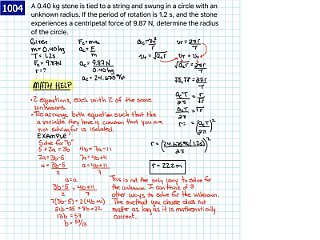 1004
A 0.40 kg stone is tied to a string and swung in a circle with an
unknown radius. If the period of rotation is 1.2 s, and the stone
experiences a centripetal force of 9.87 N, determine the radius
of the circle.
Given
m = 0.40 kg
T = 1.2s
Fc = 9.87N
r = ?
Fc = mac
ac = Fc/m
ac = 9.87 N/0.40 kg
ac = 24.675 m/s²
ac = v²/r
v = √acr
v = 2πr/T
v = v
√acr = 2πr/T
√ac√r = 2πr/T
acT/2π = r/√r
MATH HELP
• 2 equations, each with 2 of the same
unknowns.
• Re arrange both equation such that the
variable they have in common that you are
not solving for is isolated.
EXAMPLE
Solve for "b"
5 + 2a = 3b
4b = 7a - 11
2a = 3b - 5
7a = 4b + 11
a = 3b - 5/2
a = 4b + 11/7
a = a
3b - 5/2 = 4b + 11/7
7(3b - 5) = 2(4b + 11)
21b - 35 = 8b + 22
13b = 57
r = 2.22 m
This is not the only way to solve for
the unknown. I can think of 3
other ways to solve for the unknown.
The method you choose does not
matter as long as it is mathematically
correct.